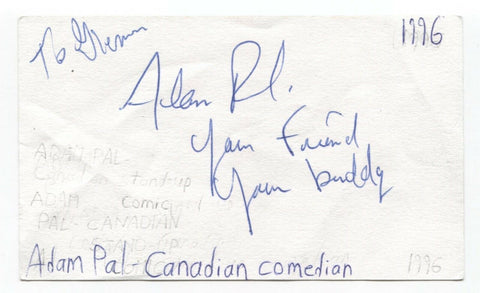 To Glenn
1996
Adam Pal.
Your Friend
Your buddy
ADAM PAL-
Canad standup
ADAM comic
PAL- CANADIAN
STAND-up
Adam Pal- Canadian comedian
1996